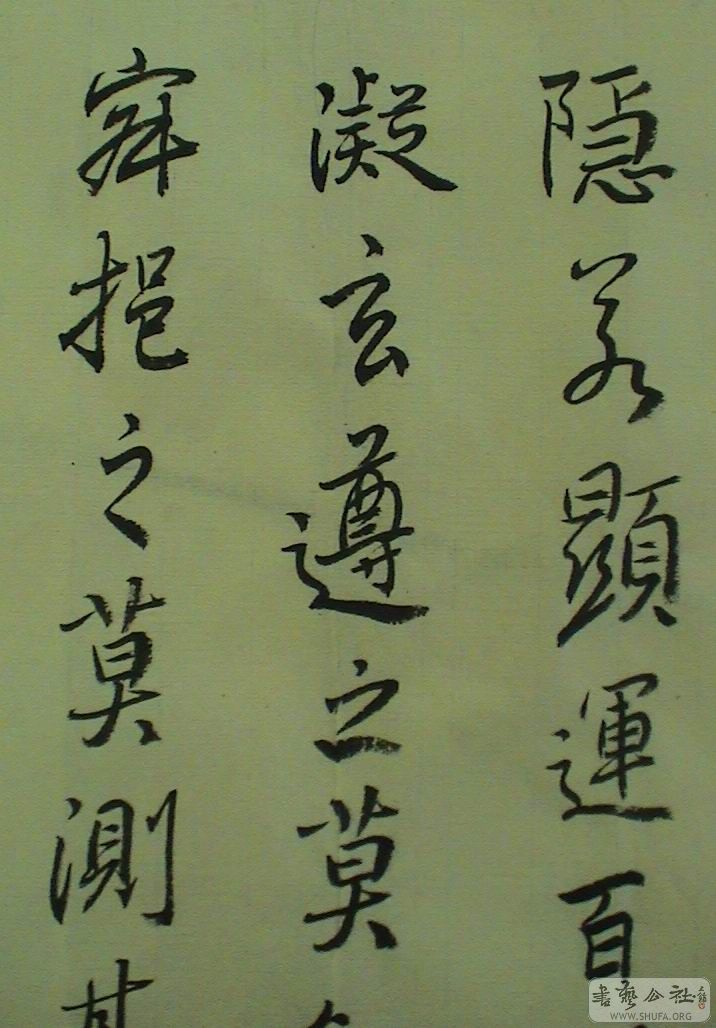 隱若顯運百
凝玄遵之莫
寂挹之莫測其
書藝公社
WWW.SHUFA.ORG